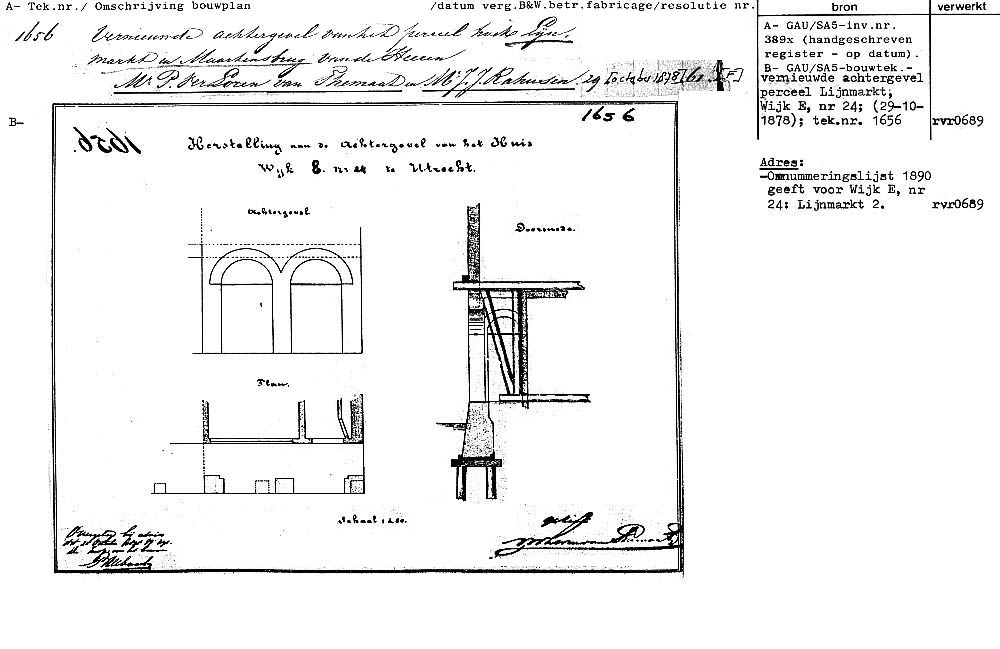 A- Tek.nr./ Omschrijving bouwplan /datum verg.B&W.betr.fabricage/resolutie nr.
bron
verwerkt
1656 Vernieuwde achtergevel van het perceel hoek Lijn-
markt en Maartensbrug van de Heeren
Mr. P. VerLoren van Themaat en Mr. J. J. Rahusen. 29 October 1878
A- GAU/SA5-inv.nr.
389x (handgeschreven
register - op datum).
B- GAU/SA5-bouwtek.-
vernieuwde achtergevel
perceel Lijnmarkt;
Wijk E, nr 24; (29-10-
1878); tek.nr. 1656 rvr0689
Adres:
-Omnummeringslijst 1890
geeft voor Wijk E, nr
24: Lijnmarkt 2. rvr0689
B-
1656
1656.
Herstelling aan de Achtergevel van het Huis
Wijk E. nr 24 te Utrecht.
Achtergevel
Doorsnede.
Plan.
Schaal 1 à 50.